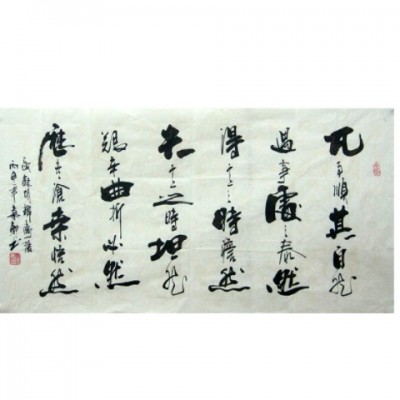 凡事順其自然
遇事處之泰然
得意之時淡然
失意之時坦然
艱辛曲折必然
歷盡滄桑悟然